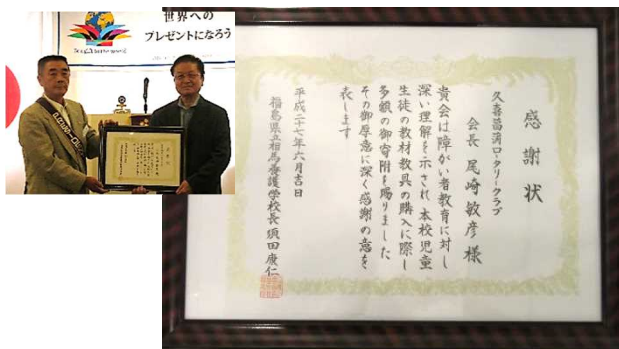 世界への
プレゼントになろう
感謝状
久喜菖蒲ロータリークラブ
会長 尾崎敏彦様
貴会は障がい者教育に対し
深い理解を示され本校児童
生徒の教材教具の購入に際し
多額の御寄附を賜りました
その御厚意に深く感謝の意を
表します
平成二十七年六月吉日
福島県立相馬養護学校長 須田康仁